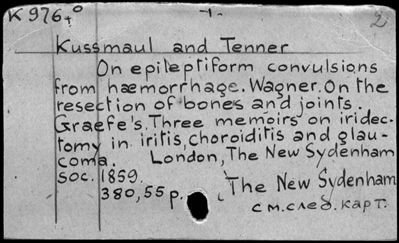 K 976+0 -1- 2
Kussmaul and Tenner
On epileptiform convulsions
from hæmorrhage. Wagner. On the
resection of bones and joints.
Graefe's. Three memoirs on iridec-
tomy in iritis, choroiditis and glau-
coma. London, The New Sydenham
soc. 1859.
380, 55 p. The New Sydenham
см. след. карт.